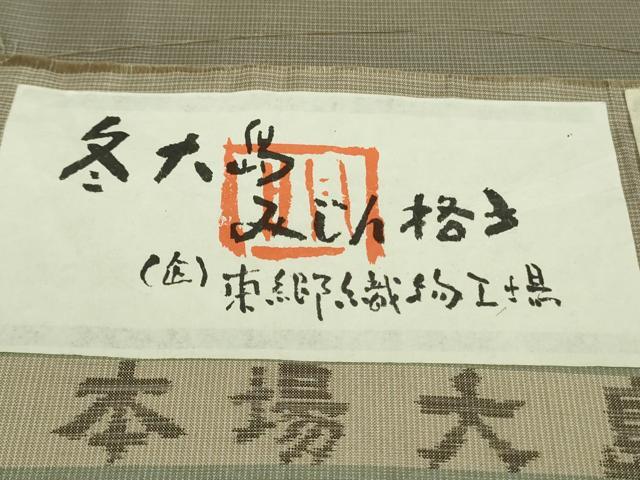 冬大島
みじん格子
(企)東郷織物工場
本場大島